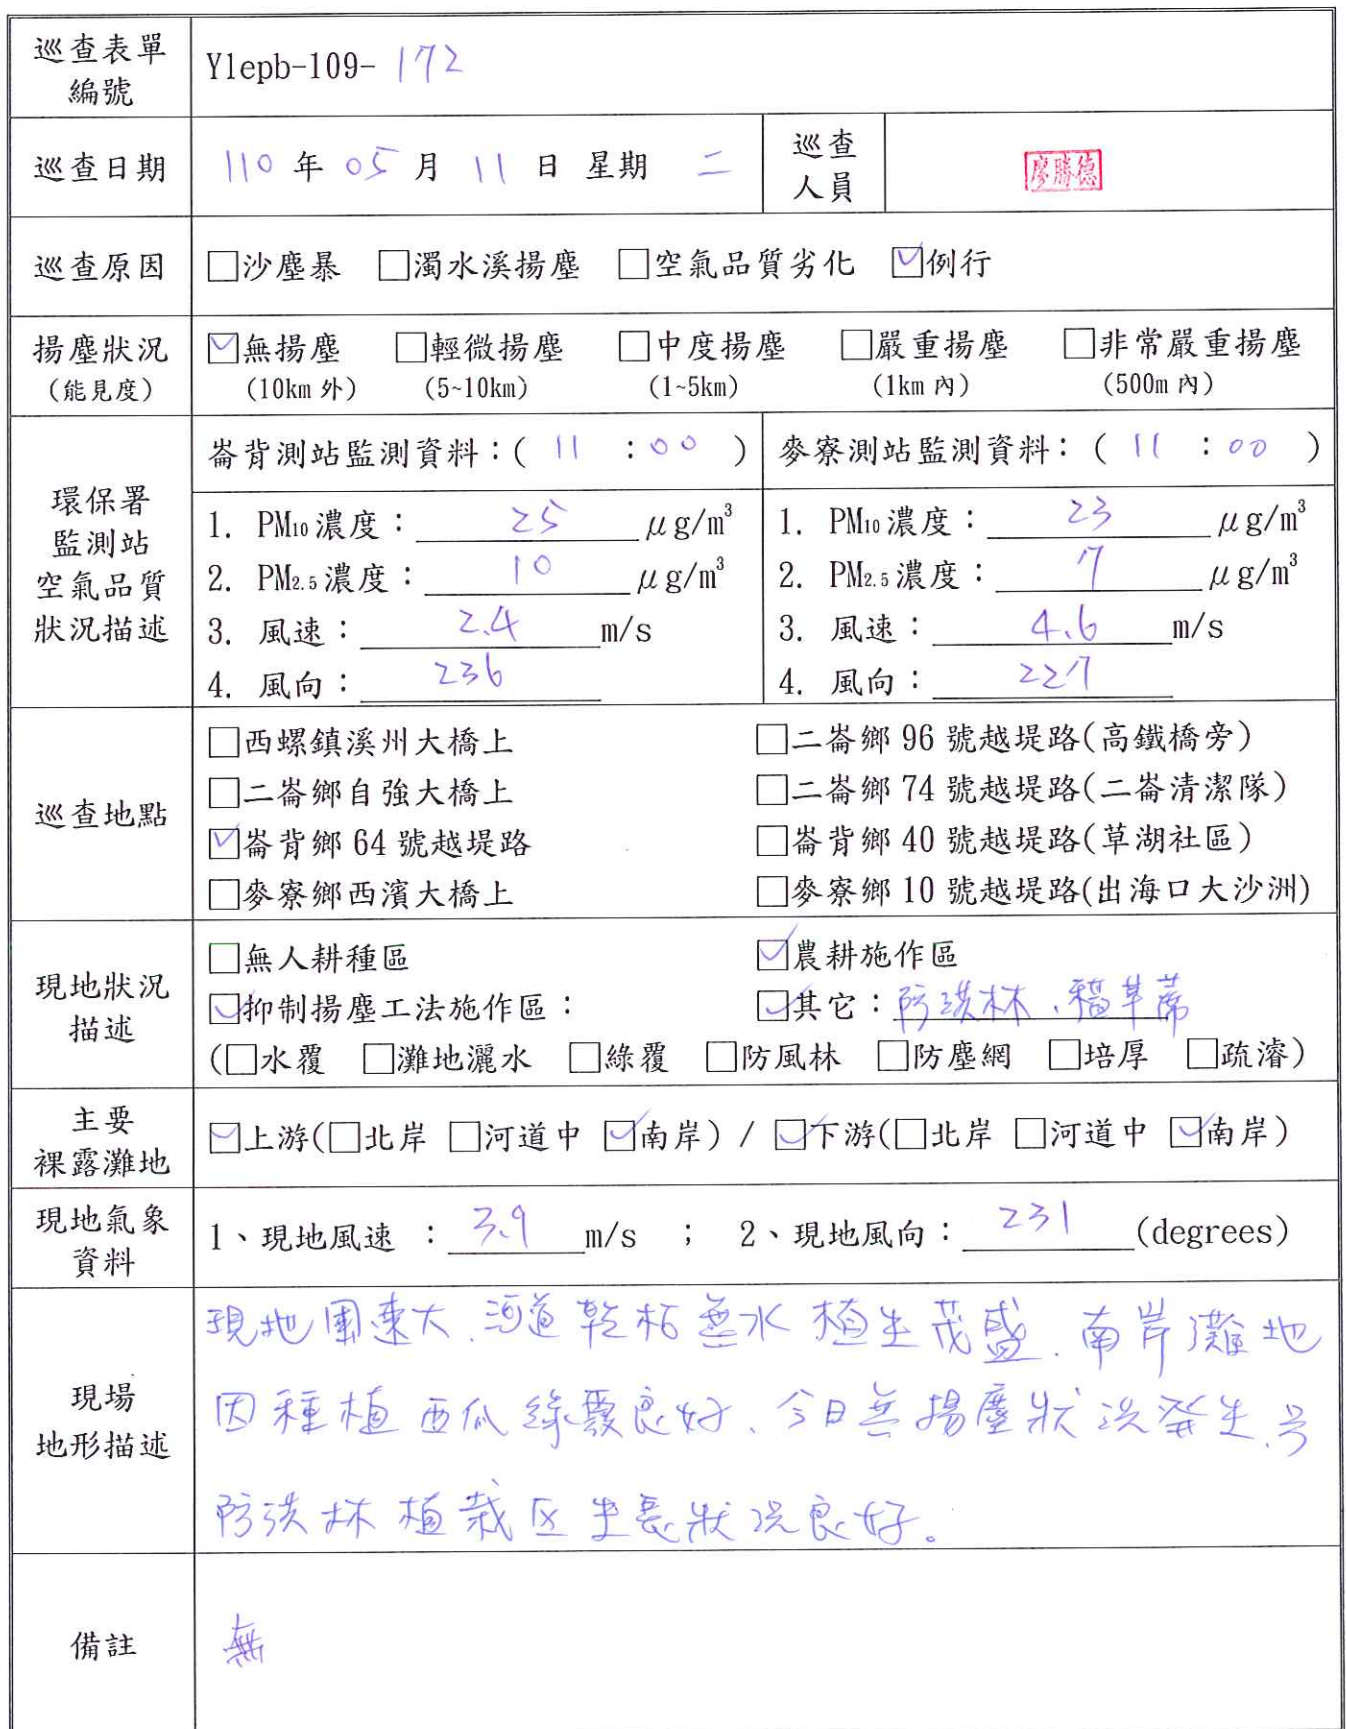 巡查表單
編號
Ylepb-109-172
巡查日期
110年05月11日 星期 二
巡查
人員
廖勝德
巡查原因
□沙塵暴 □濁水溪揚塵 □空氣品質劣化 ☑例行
揚塵狀況
(能見度)
☑無揚塵 □輕微揚塵 □中度揚塵 □嚴重揚塵 □非常嚴重揚塵
(10km 外) (5~10km) (1~5km) (1km 內) (500m 內)
環保署
監測站
空氣品質
狀況描述
崙背測站監測資料：( 11 : 00 )
1. PM₁₀濃度：25 μg/m³
2. PM₂.₅濃度：10 μg/m³
3. 風速：2.4 m/s
4. 風向：236
麥寮測站監測資料：( 11 : 00 )
1. PM₁₀濃度：23 μg/m³
2. PM₂.₅濃度：7 μg/m³
3. 風速：4.6 m/s
4. 風向：227
巡查地點
□西螺鎮溪州大橋上 □二崙鄉 96 號越堤路(高鐵橋旁)
□二崙鄉自強大橋上 □二崙鄉 74 號越堤路(二崙清潔隊)
☑崙背鄉 64 號越堤路 □崙背鄉 40 號越堤路(草湖社區)
□麥寮鄉西濱大橋上 □麥寮鄉 10 號越堤路(出海口大沙洲)
現地狀況
描述
□無人耕種區 ☑農耕施作區
☑抑制揚塵工法施作區： ☑其它：防洪林、稻草蓆
(□水覆 □灘地灑水 □綠覆 □防風林 □防塵網 □培厚 □疏濬)
主要
裸露灘地
☑上游(□北岸 □河道中 ☑南岸) / ☑下游(□北岸 □河道中 ☑南岸)
現地氣象
資料
1、現地風速 ：3.9 m/s ； 2、現地風向：231 (degrees)
現場
地形描述
現地風速大、河道乾枯無水植生茂盛、南岸灘地
因種植西瓜綠覆良好、今日無揚塵狀況發生、另
防洪林植栽区生長狀況良好。
備註
無